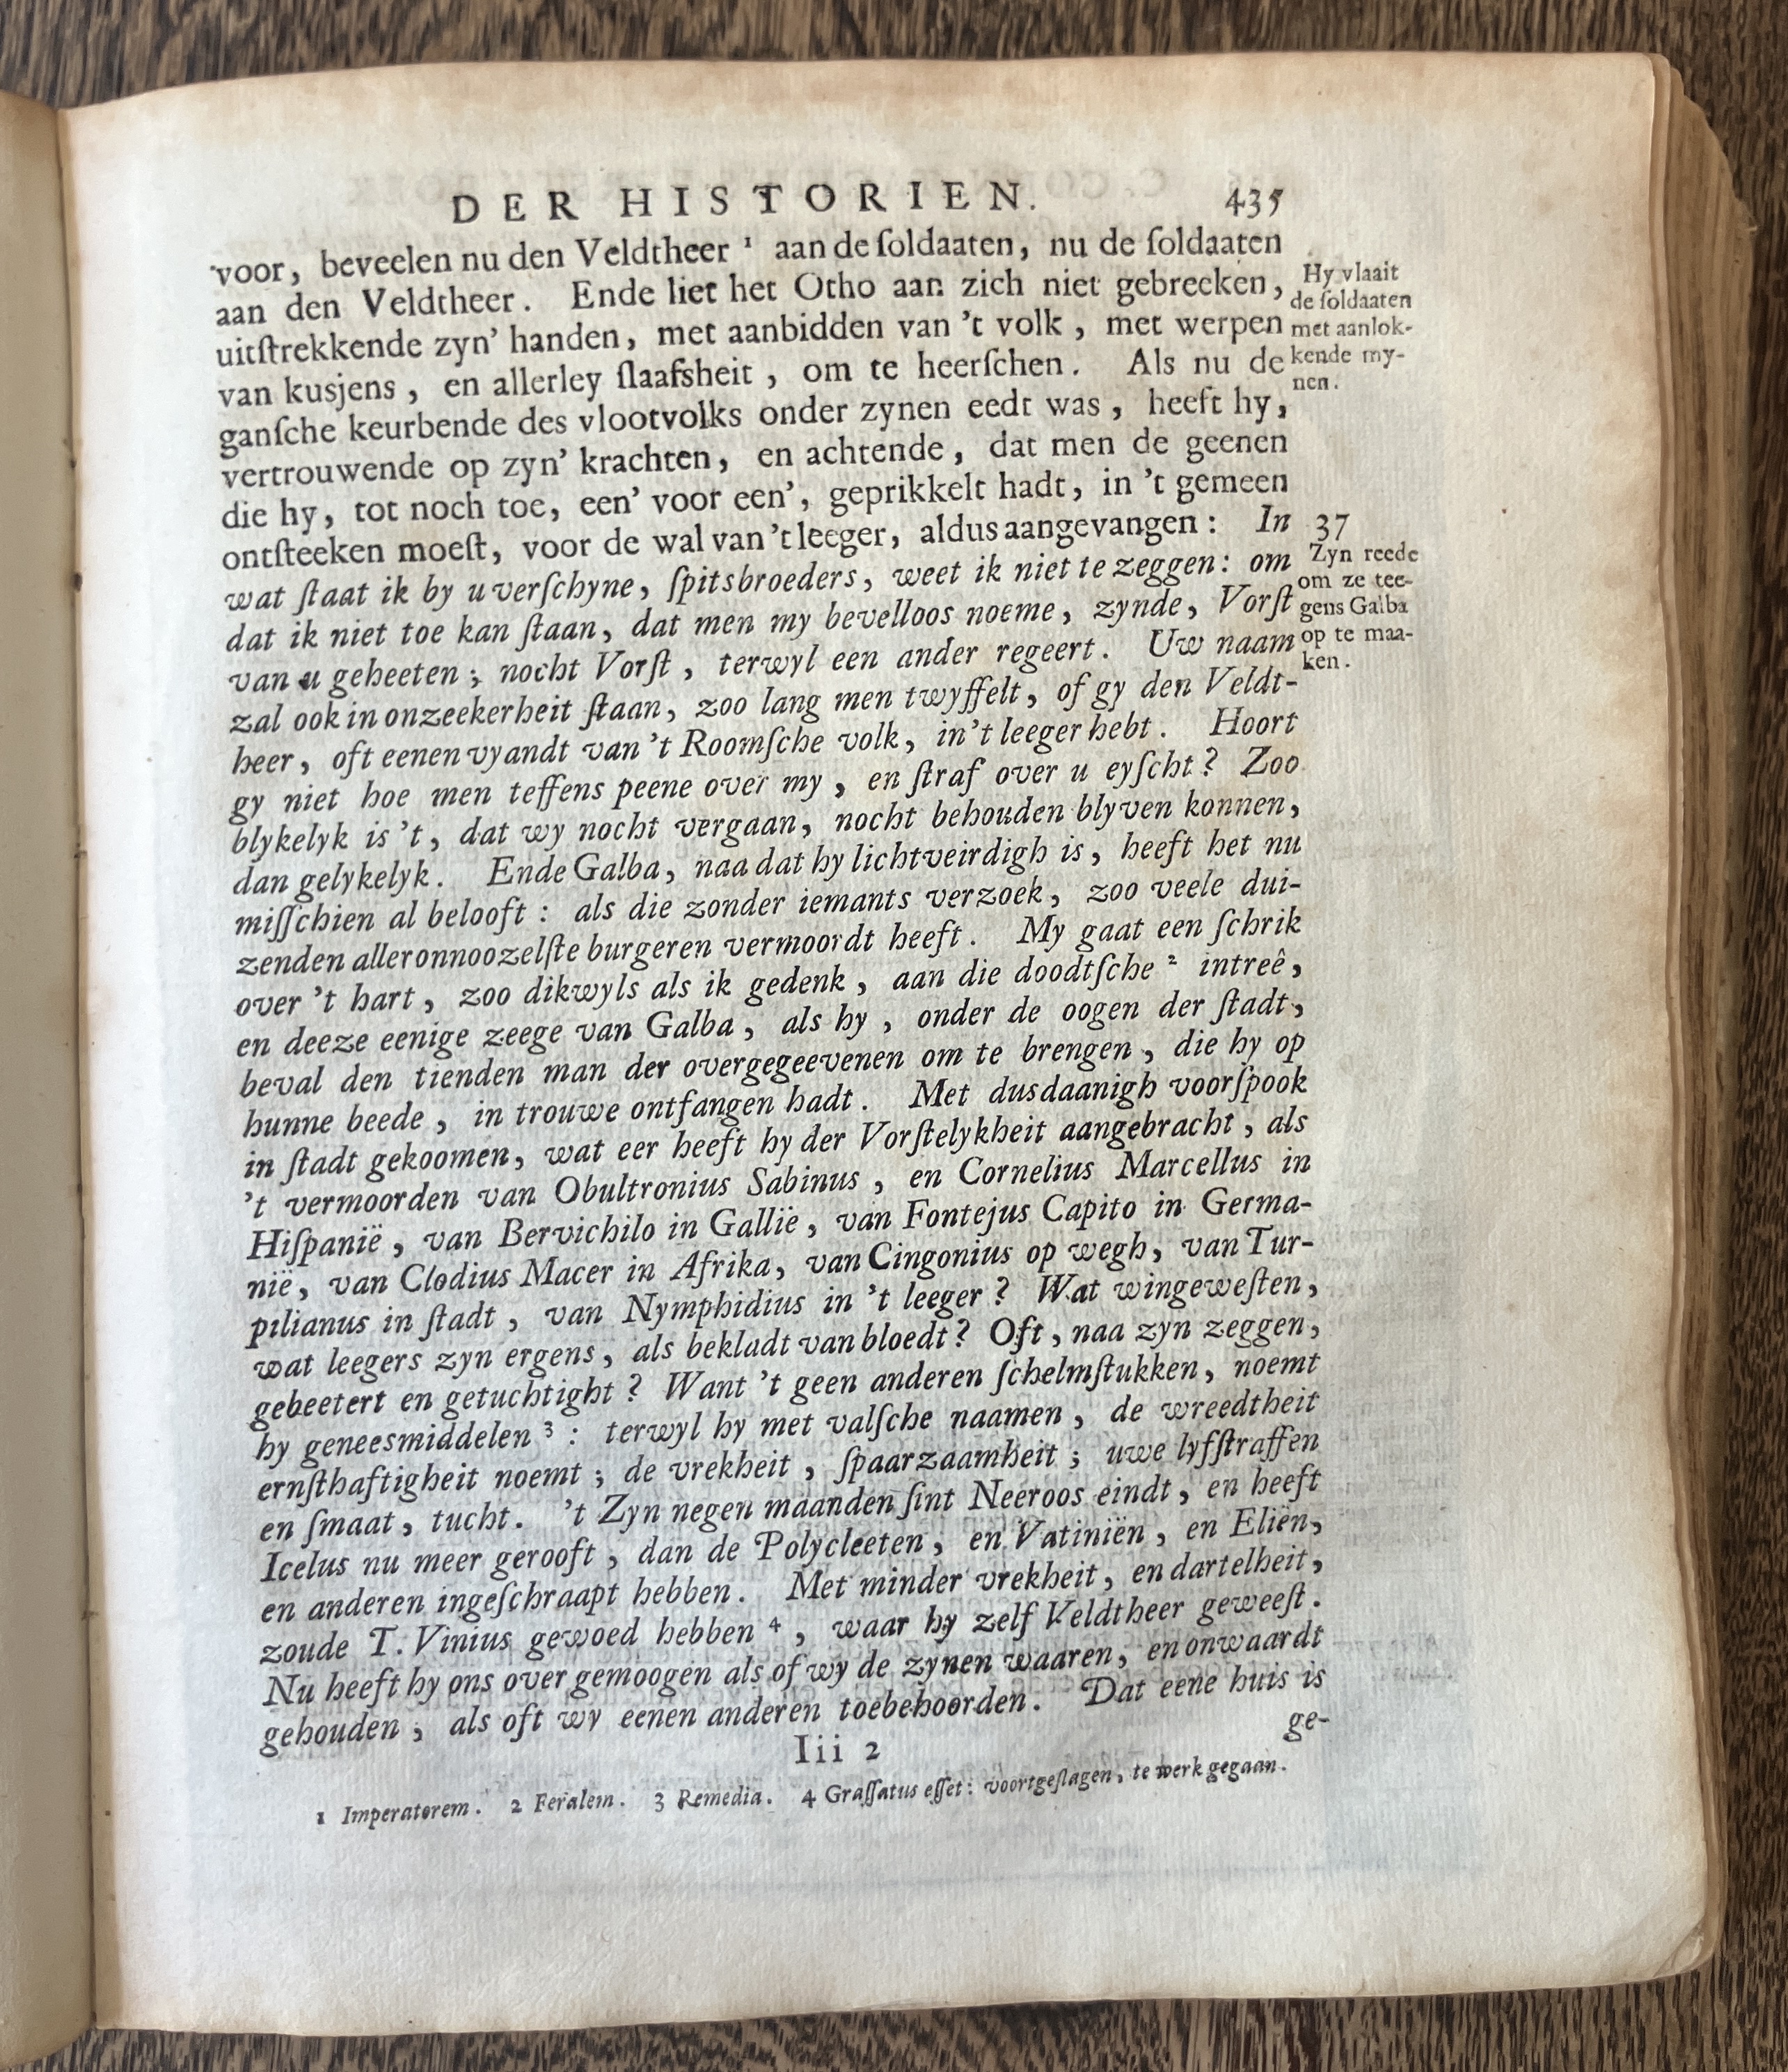 DER HISTORIEN. 435
voor, beveelen nu den Veldtheer ¹ aan de ſoldaaten, nu de ſoldaaten
aan den Veldtheer. Ende liet het Otho aan zich niet gebreeken,
uitſtrekkende zyn' handen, met aanbidden van 't volk, met werpen
van kusjens, en allerley ſlaafsheit, om te heerſchen. Als nu de
ganſche keurbende des vlootvolks onder zynen eedt was, heeft hy,
vertrouwende op zyn' krachten, en achtende, dat men de geenen
die hy, tot noch toe, een' voor een', geprikkelt hadt, in 't gemeen
ontſteeken moeſt, voor de wal van 't leeger, aldus aangevangen: In
wat ſtaat ik by u verſchyne, ſpitsbroeders, weet ik niet te zeggen: om
dat ik niet toe kan ſtaan, dat men my bevelloos noeme, zynde, Vorſt
van u geheeten; nocht Vorſt, terwyl een ander regeert. Uw naam
zal ook in onzeekerheit ſtaan, zoo lang men twyffelt, of gy den Veldt-
heer, oft eenen vyandt van 't Roomſche volk, in 't leeger hebt. Hoort
gy niet hoe men teffens peene over my, en ſtraf over u eyſcht? Zoo
blykelyk is 't, dat wy nocht vergaan, nocht behouden blyven konnen,
dan gelykelyk. Ende Galba, naa dat hy lichtveirdigh is, heeft het nu
miſſchien al belooft: als die zonder iemants verzoek, zoo veele dui-
zenden alleronnoozelſte burgeren vermoordt heeft. My gaat een ſchrik
over 't hart, zoo dikwyls als ik gedenk, aan die doodtſche ² intreê,
en deeze eenige zeege van Galba, als hy, onder de oogen der ſtadt,
beval den tienden man der overgegeevenen om te brengen, die hy op
hunne beede, in trouwe ontfangen hadt. Met dusdaanigh voorſpook
in ſtadt gekoomen, wat eer heeft hy der Vorſtelykheit aangebracht, als
't vermoorden van Obultronius Sabinus, en Cornelius Marcellus in
Hiſpanië, van Bervichilo in Gallië, van Fontejus Capito in Germa-
nië, van Clodius Macer in Afrika, van Cingonius op wegh, van Tur-
pilianus in ſtadt, van Nymphidius in 't leeger? Wat wingeweſten,
wat leegers zyn ergens, als bekladt van bloedt? Oft, naa zyn zeggen,
gebeetert en getuchtight? Want 't geen anderen ſchelmſtukken, noemt
hy geneesmiddelen ³: terwyl hy met valſche naamen, de wreedtheit
ernſthaftigheit noemt; de vrekheit, ſpaarzaamheit; uwe lyfſtraffen
en ſmaat, tucht. 't Zyn negen maanden ſint Neeroos eindt, en heeft
Icelus nu meer gerooft, dan de Polycleeten, en Vatiniën, en Eliën,
en anderen ingeſchraapt hebben. Met minder vrekheit, en dartelheit,
zoude T. Vinius gewoed hebben ⁴, waar hy zelf Veldtheer geweeſt.
Nu heeft hy ons over gemoogen als of wy de zynen waaren, en onwaardt
gehouden, als oft wy eenen anderen toebehoorden. Dat eene huis is
Iii 2 ge-
1 Imperatorem. 2 Feralem. 3 Remedia. 4 Graſſatus eſſet: voortgeſlagen, te werk gegaan.
Hy vlaait
de ſoldaaten
met aanlok-
kende my-
nen.
37
Zyn reede
om ze tee-
gens Galba
op te maa-
ken.